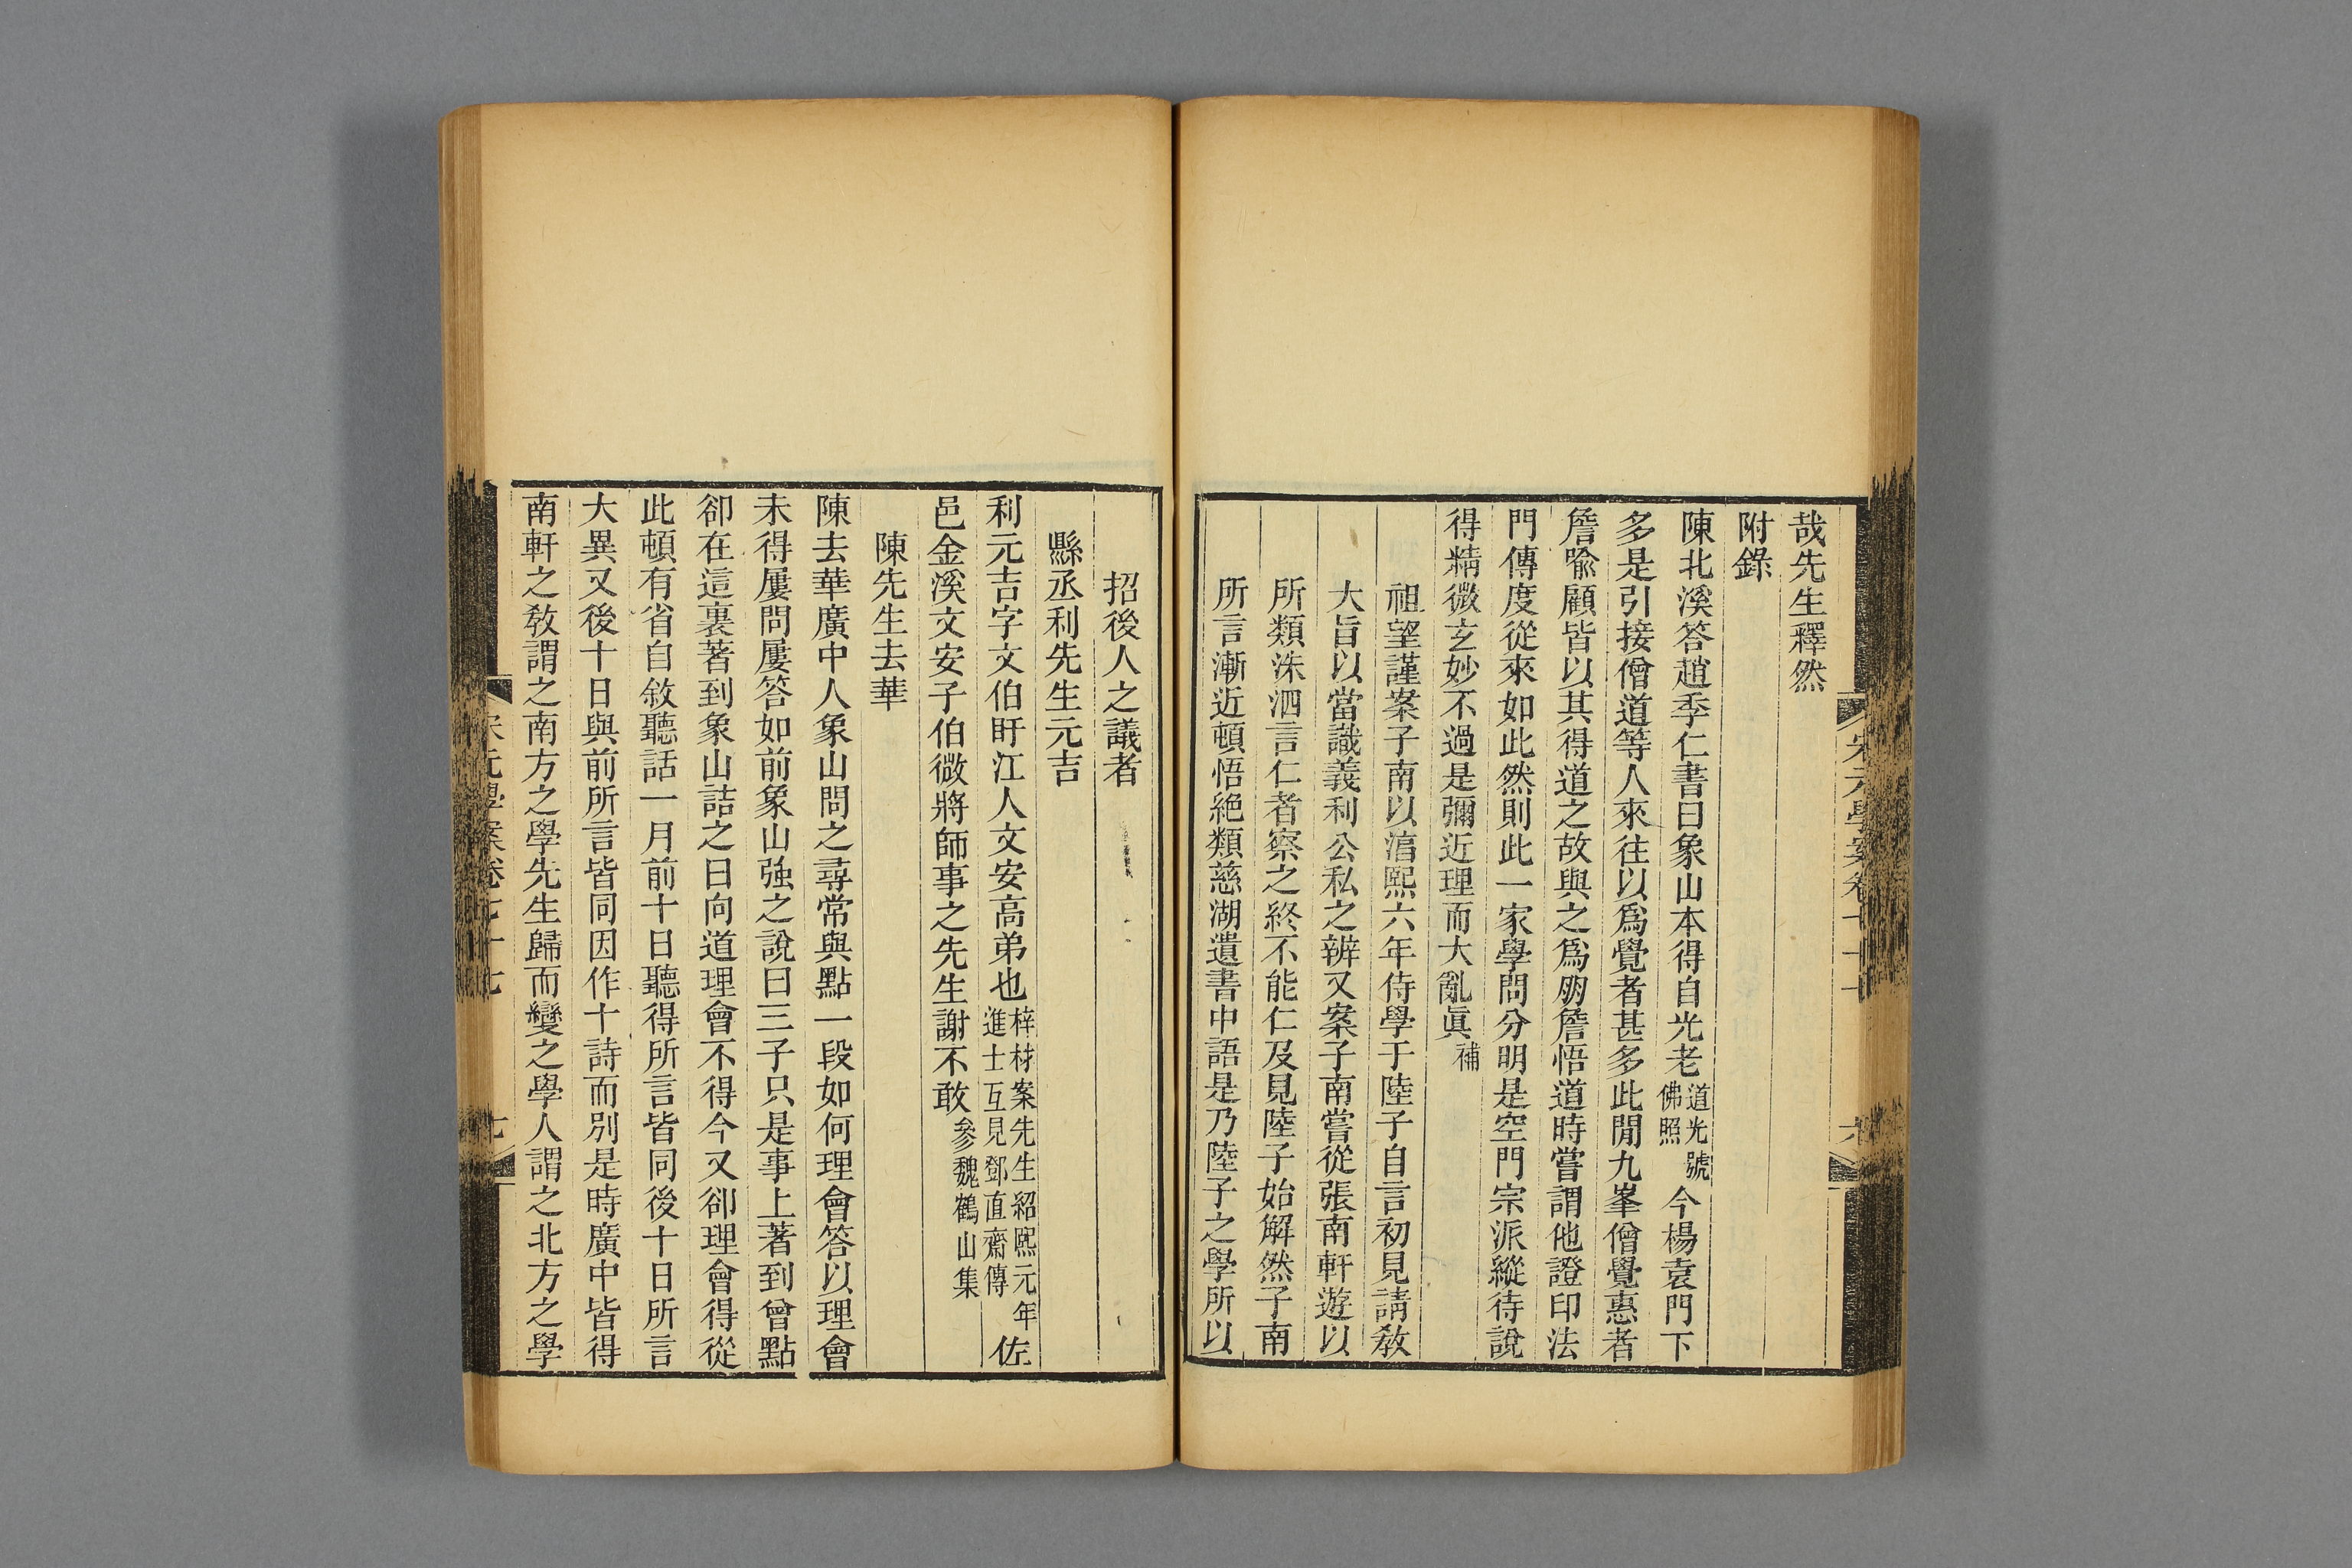 哉先生釋然
附錄
陳北溪答趙季仁書曰象山本得自光老道光號佛照今楊袁門下
多是引接僧道等人來往以爲覺者甚多此閒九峯僧覺惠者
詹喩顧皆以其得道之故與之爲朋詹悟道時嘗謂他證印法
門傳度從來如此然則此一家學問分明是空門宗派縱待說
得精微玄妙不過是彌近理而大亂眞補
祖望謹案子南以淳熙六年侍學于陸子自言初見請敎
大旨以當識義利公私之辨又案子南嘗從張南軒遊以
所類洙泗言仁者察之終不能仁及見陸子始解然子南
所言漸近頓悟絕類慈湖遺書中語是乃陸子之學所以
招後人之議者
縣丞利先生元吉
利元吉字文伯盱江人文安高弟也梓材案先生紹熙元年進士互見鄧直齋傳佐
邑金溪文安子伯微將師事之先生謝不敢參魏鶴山集
陳先生去華
陳去華廣中人象山問之尋常與點一段如何理會答以理會
未得屢問屢答如前象山強之說曰三子只是事上著到曾點
卻在這裏著到象山詰之曰向道理會不得今又卻理會得從
此頓有省自敘聽話一月前十日聽得所言皆同後十日所言
大異又後十日與前所言皆同因作十詩而別是時廣中皆得
南軒之敎謂之南方之學先生歸而變之學人謂之北方之學
宋元學案卷七十七
七